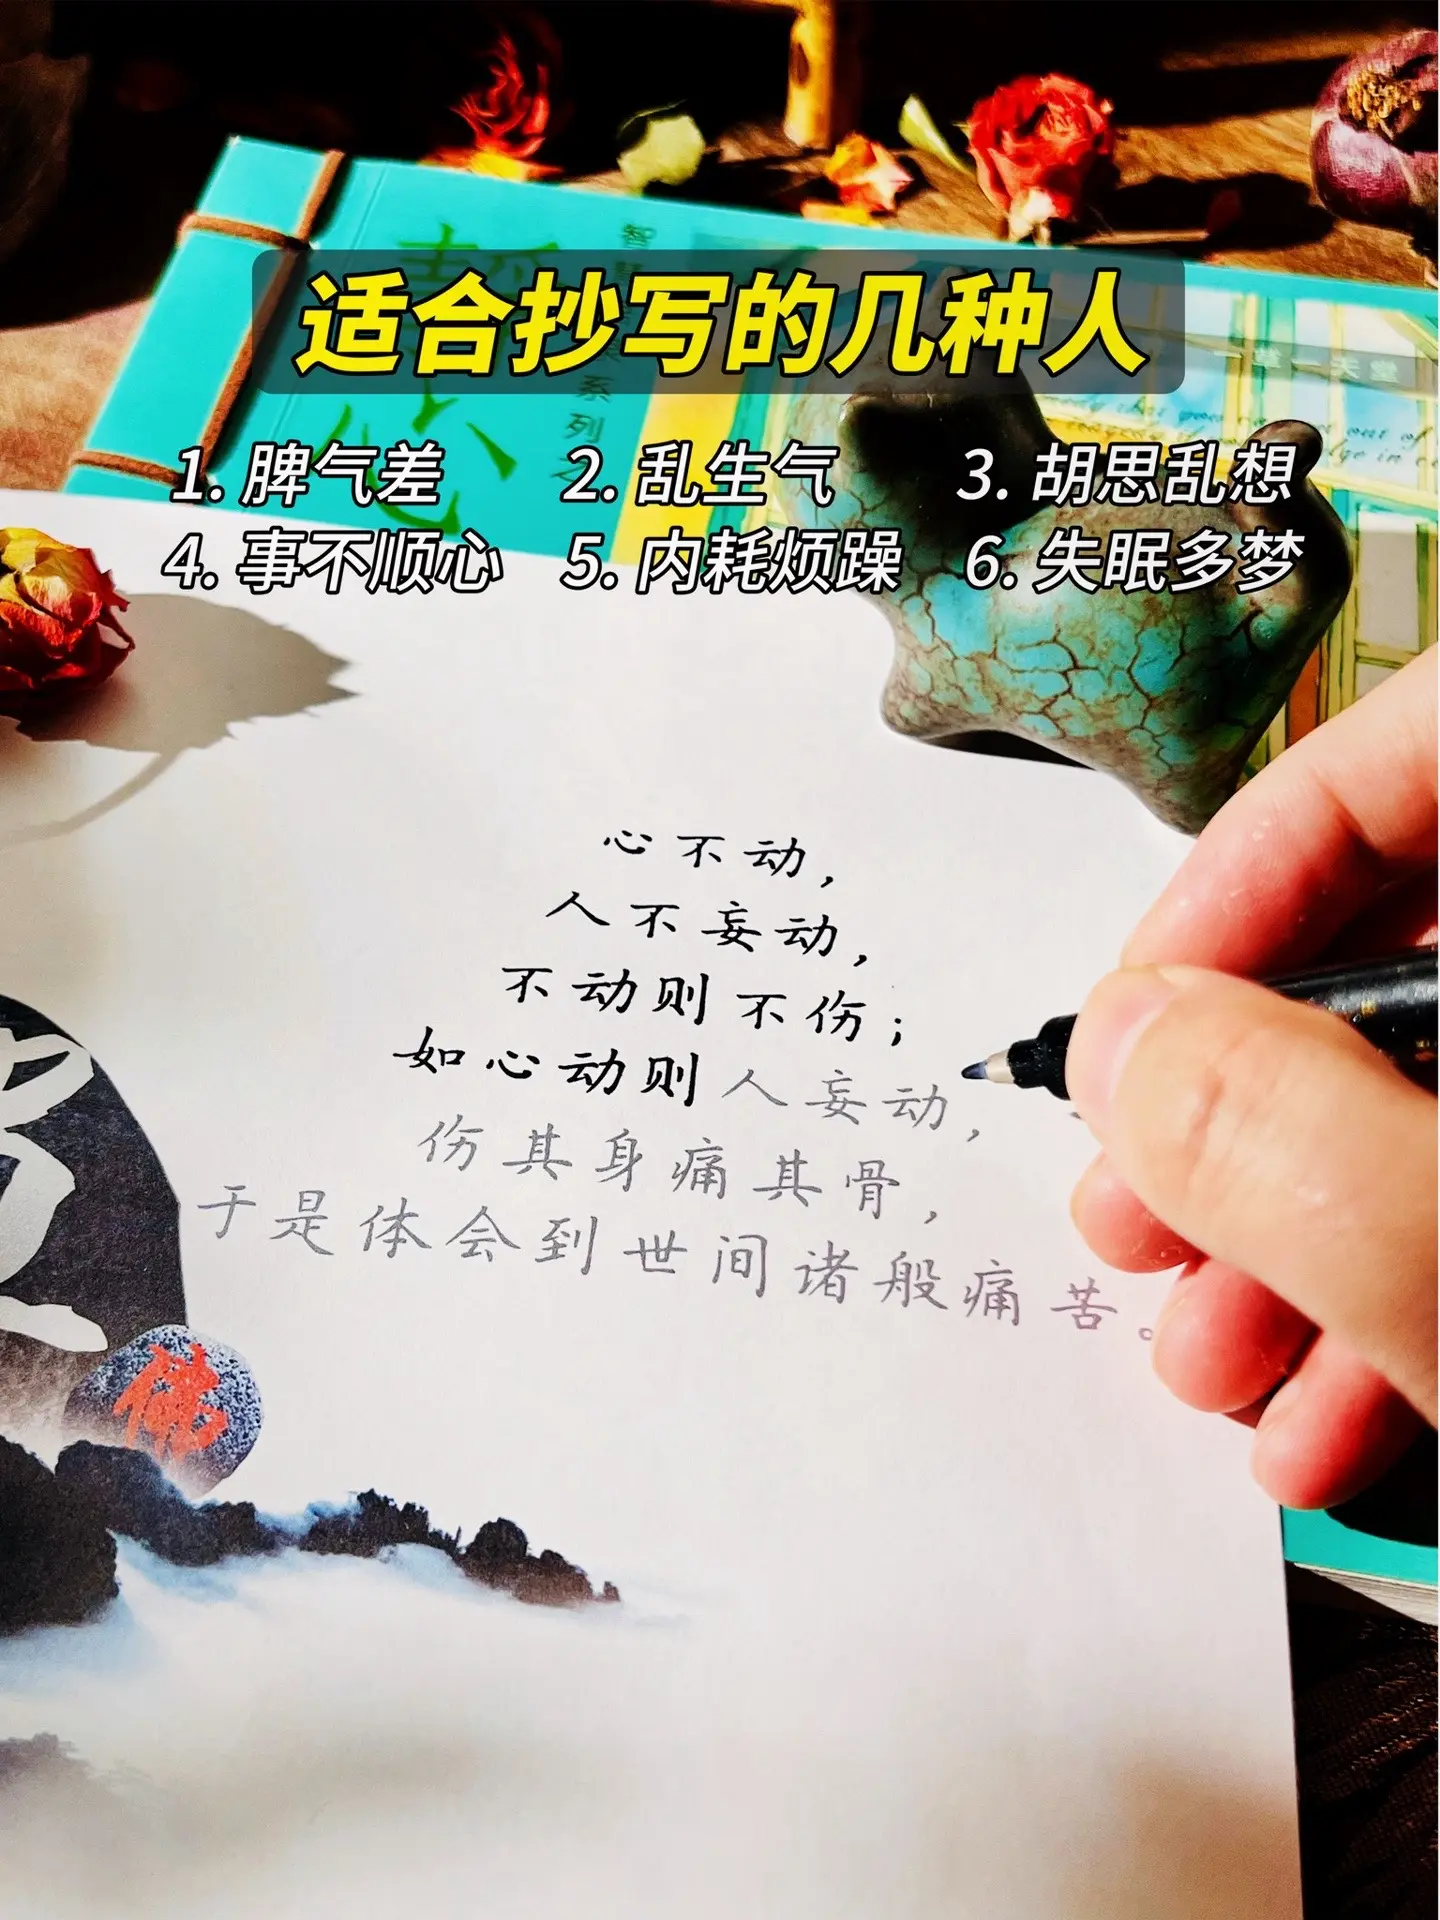 适合抄写的几种人
1. 脾气差 2. 乱生气 3. 胡思乱想
4. 事不顺心 5. 内耗烦躁 6. 失眠多梦
心不动，
人不妄动，
不动则不伤；
如心动则人妄动，
伤其身痛其骨，
于是体会到世间诸般痛苦。
佛